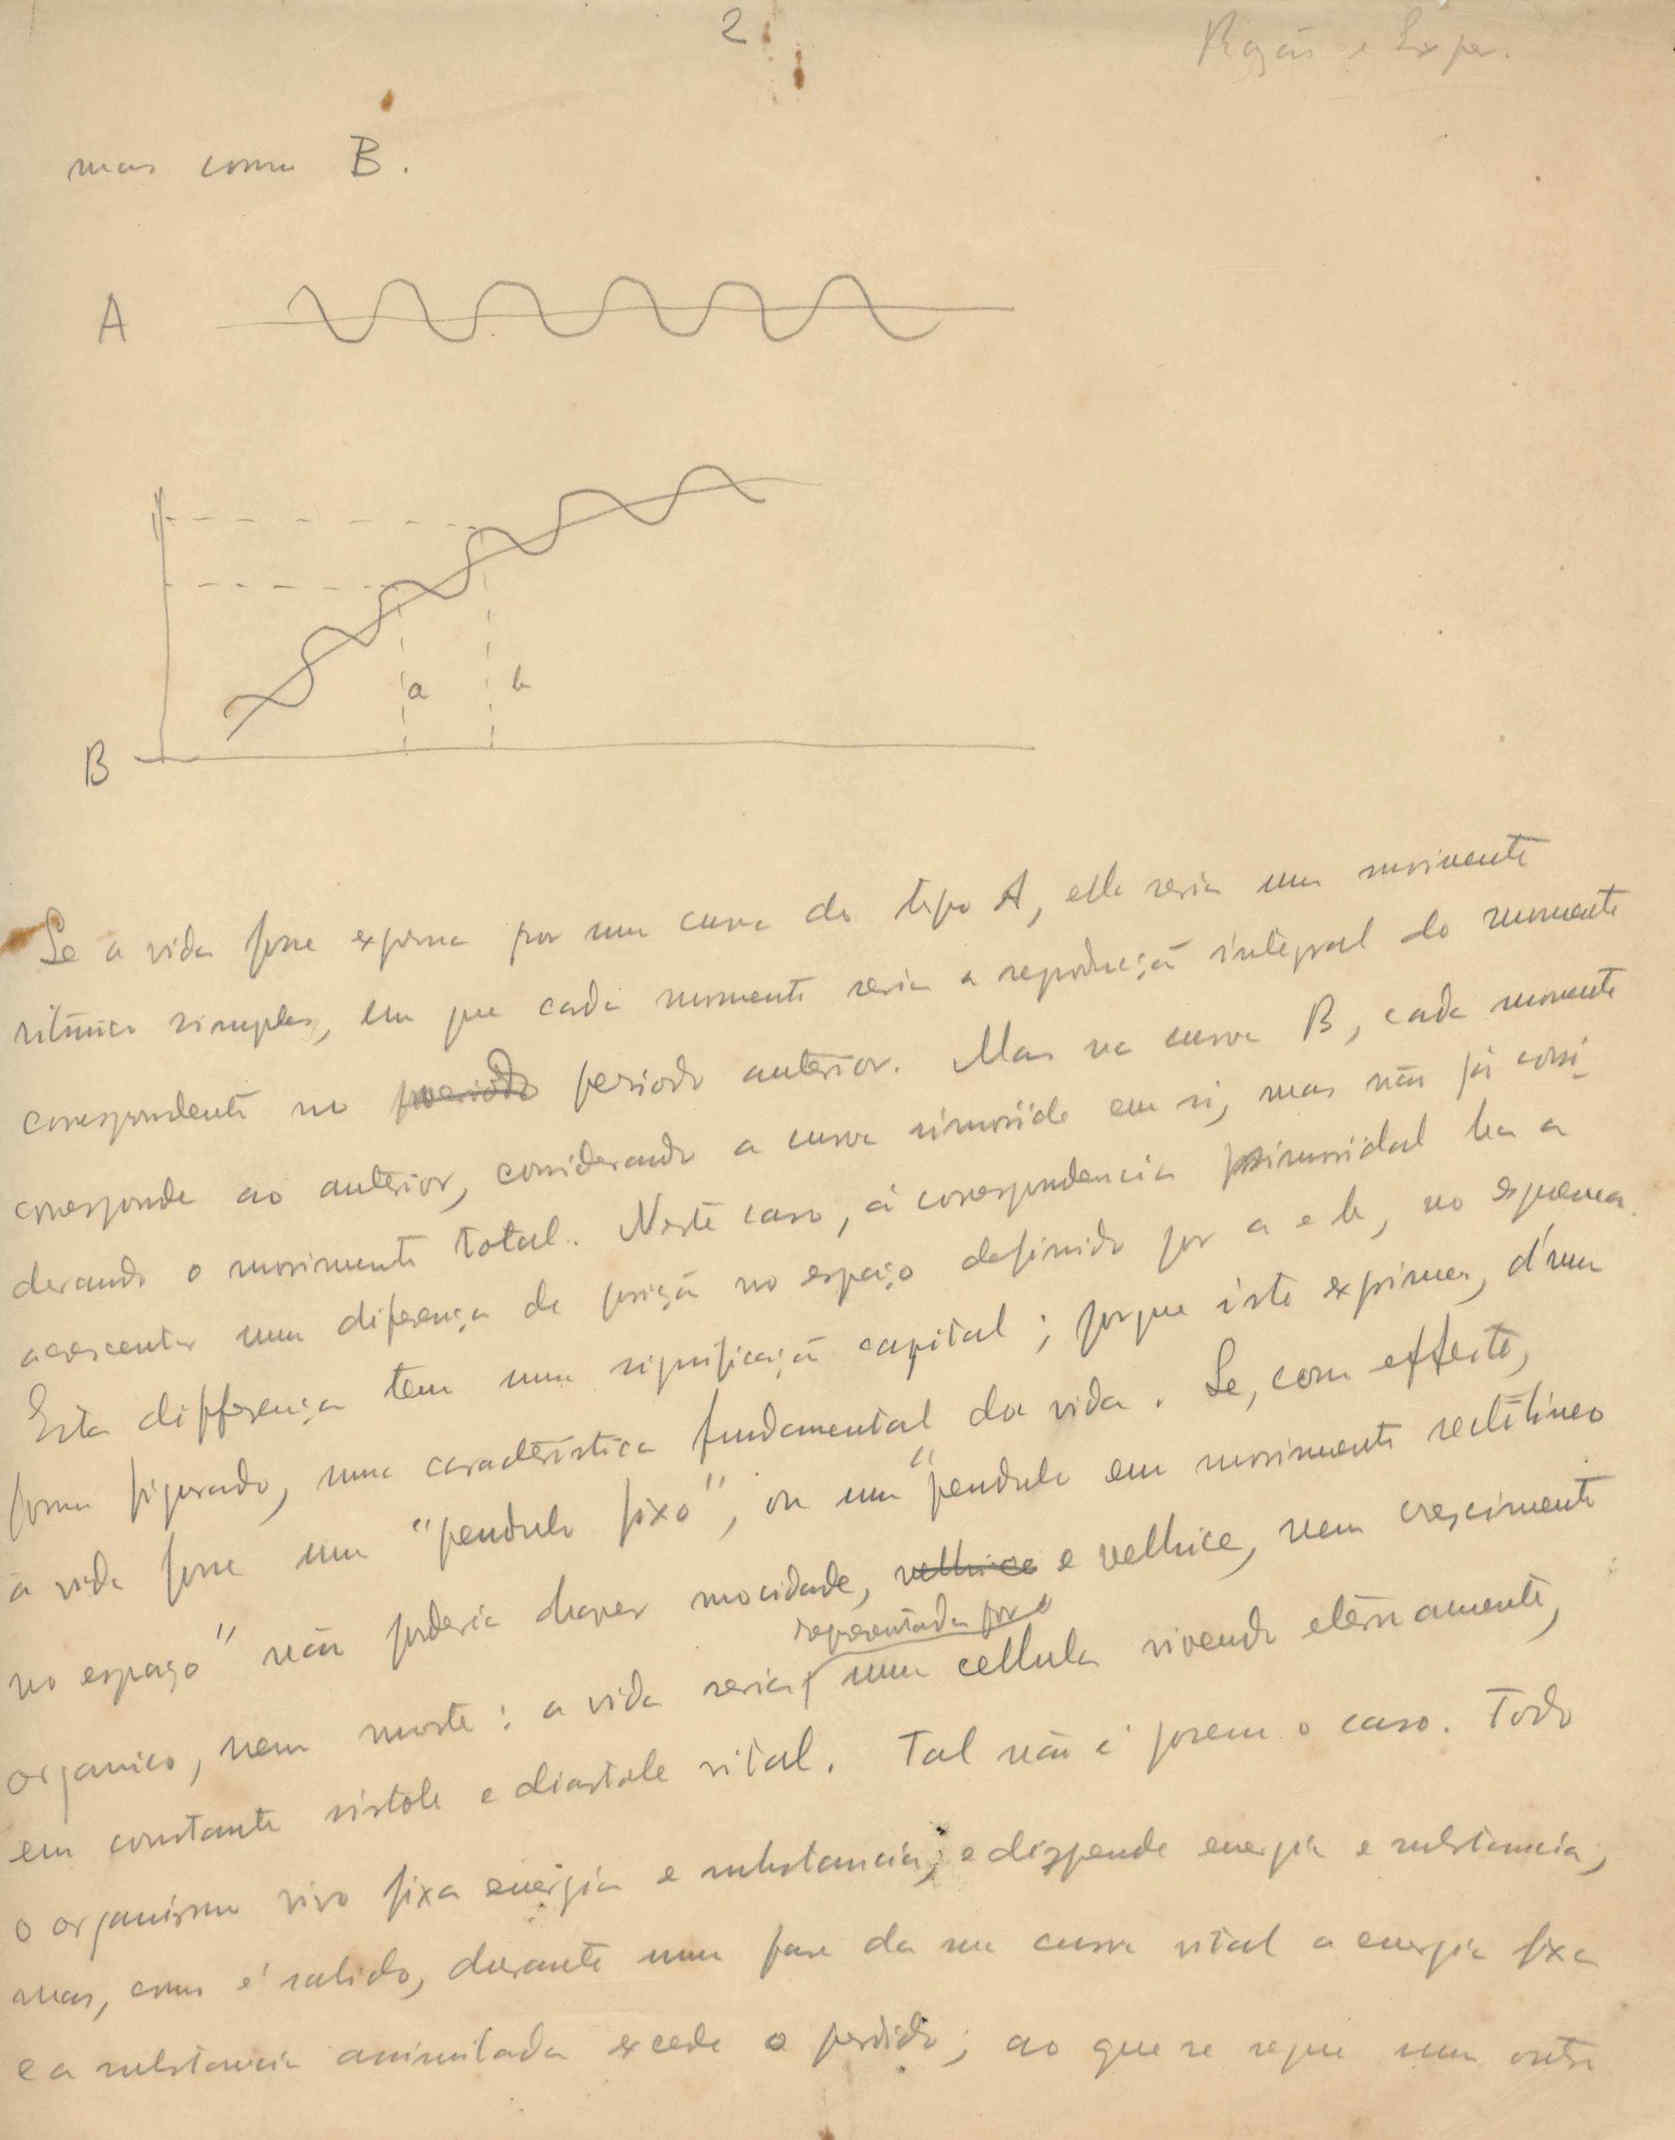 2
Razão e Exper.
mas como B.
A
a
b
B
Se a vida fosse expressa por uma curva do typo A, ella seria um movimento
ritmico simples, em que cada momento seria a reprodução integral do momento
correspondente no periodo periodo anterior. Mas na curva B, cada momento
corresponde ao anterior, considerando a curva sinusoide em si, mas não já consi-
derando o movimento total. Neste caso, á correspondencia sinusoidal ha a
acrescentar uma diferença de posição no espaço definido por a e b, no esquema.
Esta differença tem uma significação capital; porque isto exprime, d'uma
forma figurada, uma caracteristica fundamental da vida. Se, com effeito,
a vida fosse um "pendulo fixo", ou um "pendulo em movimento rectilineo
no espaço" não poderia haver mocidade, velhice e velhice, nem crescimento
representada por
organico, nem morte: a vida seria uma cellula vivendo eternamente,
em constante sistole e diastole vital. Tal não é porem o caso. Todo
o organismo vivo fixa energia e substancia; e dispende energia e substancia;
mas, como é sabido, durante uma fase da sua curva vital a energia fixa
e a substancia assimilada excede o perdido; ao que se segue um outro